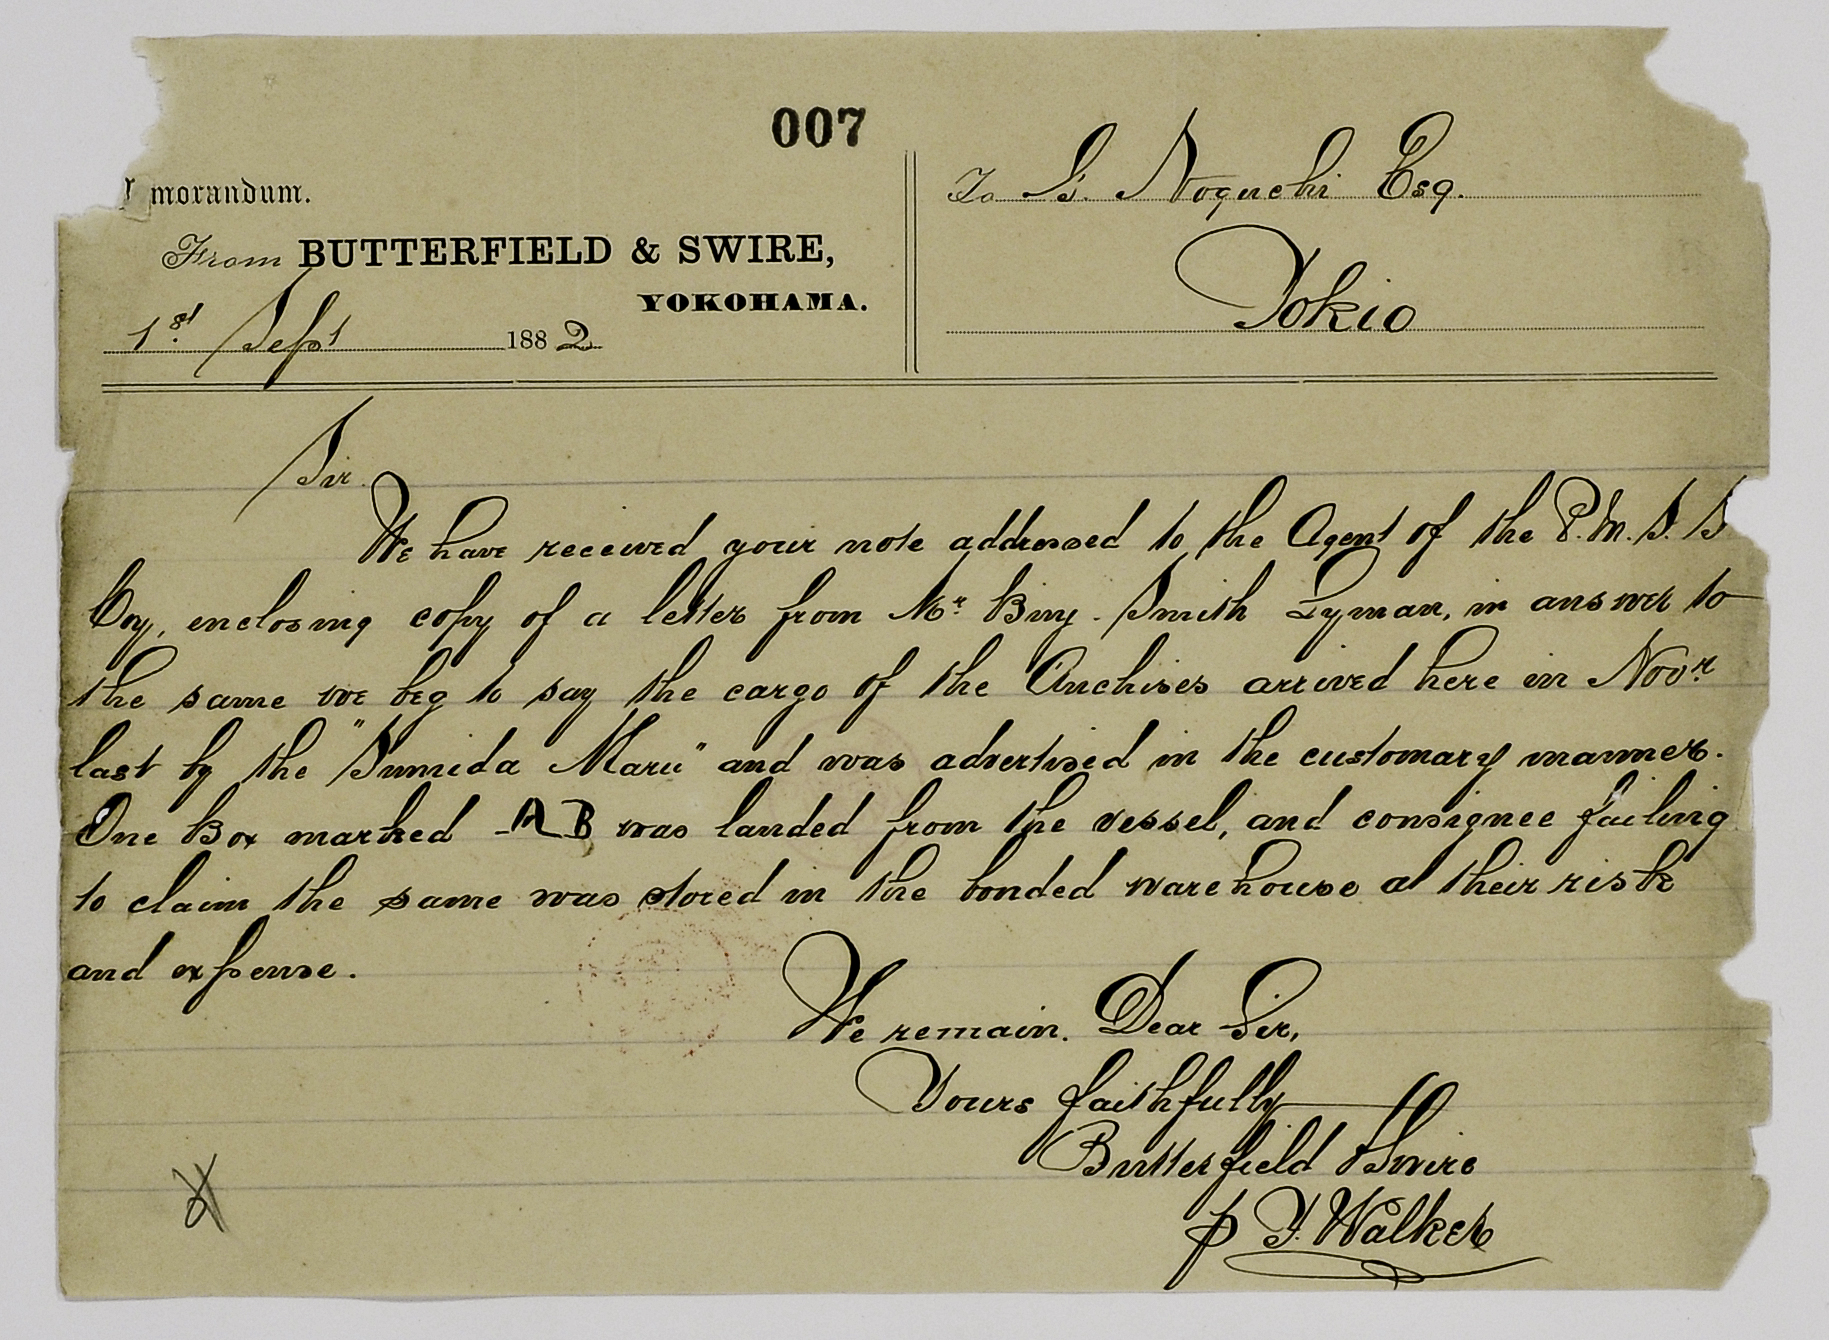 007
morandum.
From BUTTERFIELD & SWIRE,
YOKOHAMA.
1st Sept 1882
To S. Noguchi Esq.
Tokio
Sir.
We have received your note addressed to the Agent of the P.M.S.S
Coy, enclosing copy of a letter from Mr Binj. Smith Lyman, in answer to
the same we beg to say the cargo of the Anchises arrived here in Novr
last by the "Sumida Maru" and was advertised in the customary manner.
One Box marked AB was landed from the vessel, and consignee failing
to claim the same was stored in the bonded warehouse at their risk
and expense.
We remain. Dear Sir,
Yours faithfully
Butterfield & Swire
p J. Walker